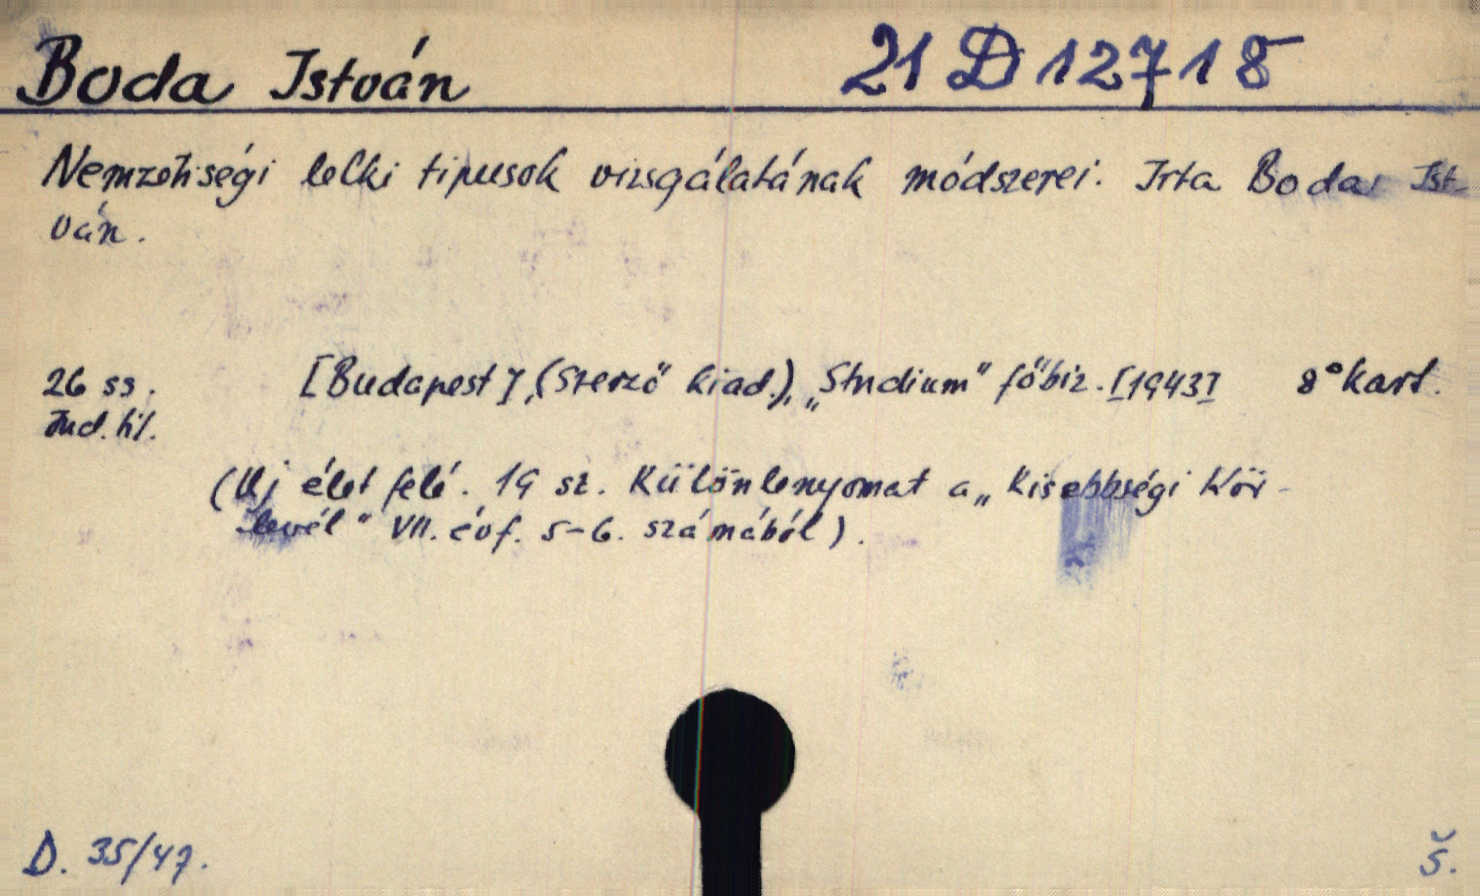 Boda István 21 D 12718
Nemzetiségi lelki tipusok vizsgálatának módszerei. Irta Boda Ist-
ván.
26 ss. [Budapest], (Szerző kiad.), „Studium" főbiz. [1943] 8° kart.
Ind. tit.
(Uj élet felé. 19 sz. Különlenyomat a „Kisebbségi Kör-
levél" VII. évf. 5-6. számából).
D. 35/47. Š.